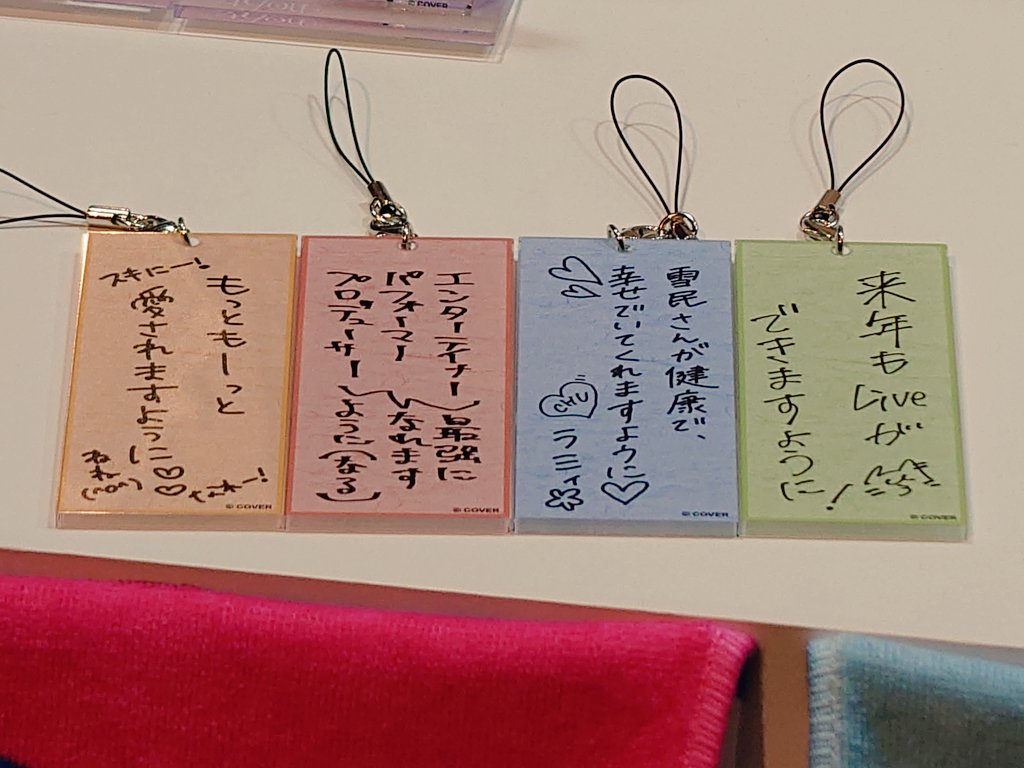 もっともーっと
愛されますように♡♡
スキにー!
ねね
© COVER
エンターテイナー
パフォーマー
プロデューサー
最強に
なれます
ように(なる)
© COVER
雪民さんが健康で、
幸せでいてくれますように♡
CHU
ラミィ
© COVER
来年も
Liveが
できますように!
© COVER
© COVER